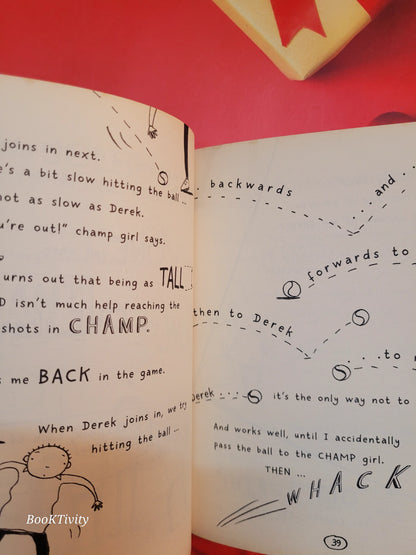 joins in next.
a bit slow hitting the ball ...
not as slow as Derek.
out!" champ girl says.
urns out that being as TALL
isn't much help reaching the
shots in CHAMP.
me BACK in the game.
When Derek joins in, we try
hitting the ball ...
BooKTivity
... backwards
... and ...
forwards to
then to Derek
...to
Derek ...
it's the only way not to
And works well, until I accidentally
pass the ball to the CHAMP girl.
THEN ...
WHACK
39